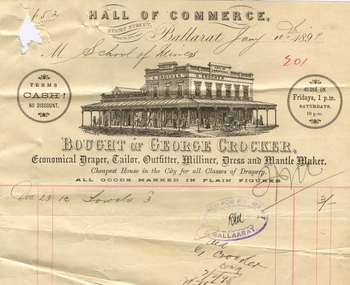 652
HALL OF COMMERCE,
STURT STREET,
Ballarat Jany 189
M School of Mines
901
TERMS
CASH!
NO DISCOUNT.
G. CROCKER
CLOSE ON
Fridays, 1 p.m.
SATURDAYS,
10 p.m.
BOUGHT OF GEORGE CROCKER,
Economical Draper, Tailor, Outfitter, Milliner, Dress and Mantle Maker.
Cheapest House in the City for all Classes of Drapery.
ALL GOODS MARKED IN PLAIN FIGURES
Dec 23 12 Towels 3/-
BALLAARAT.
G Crocker